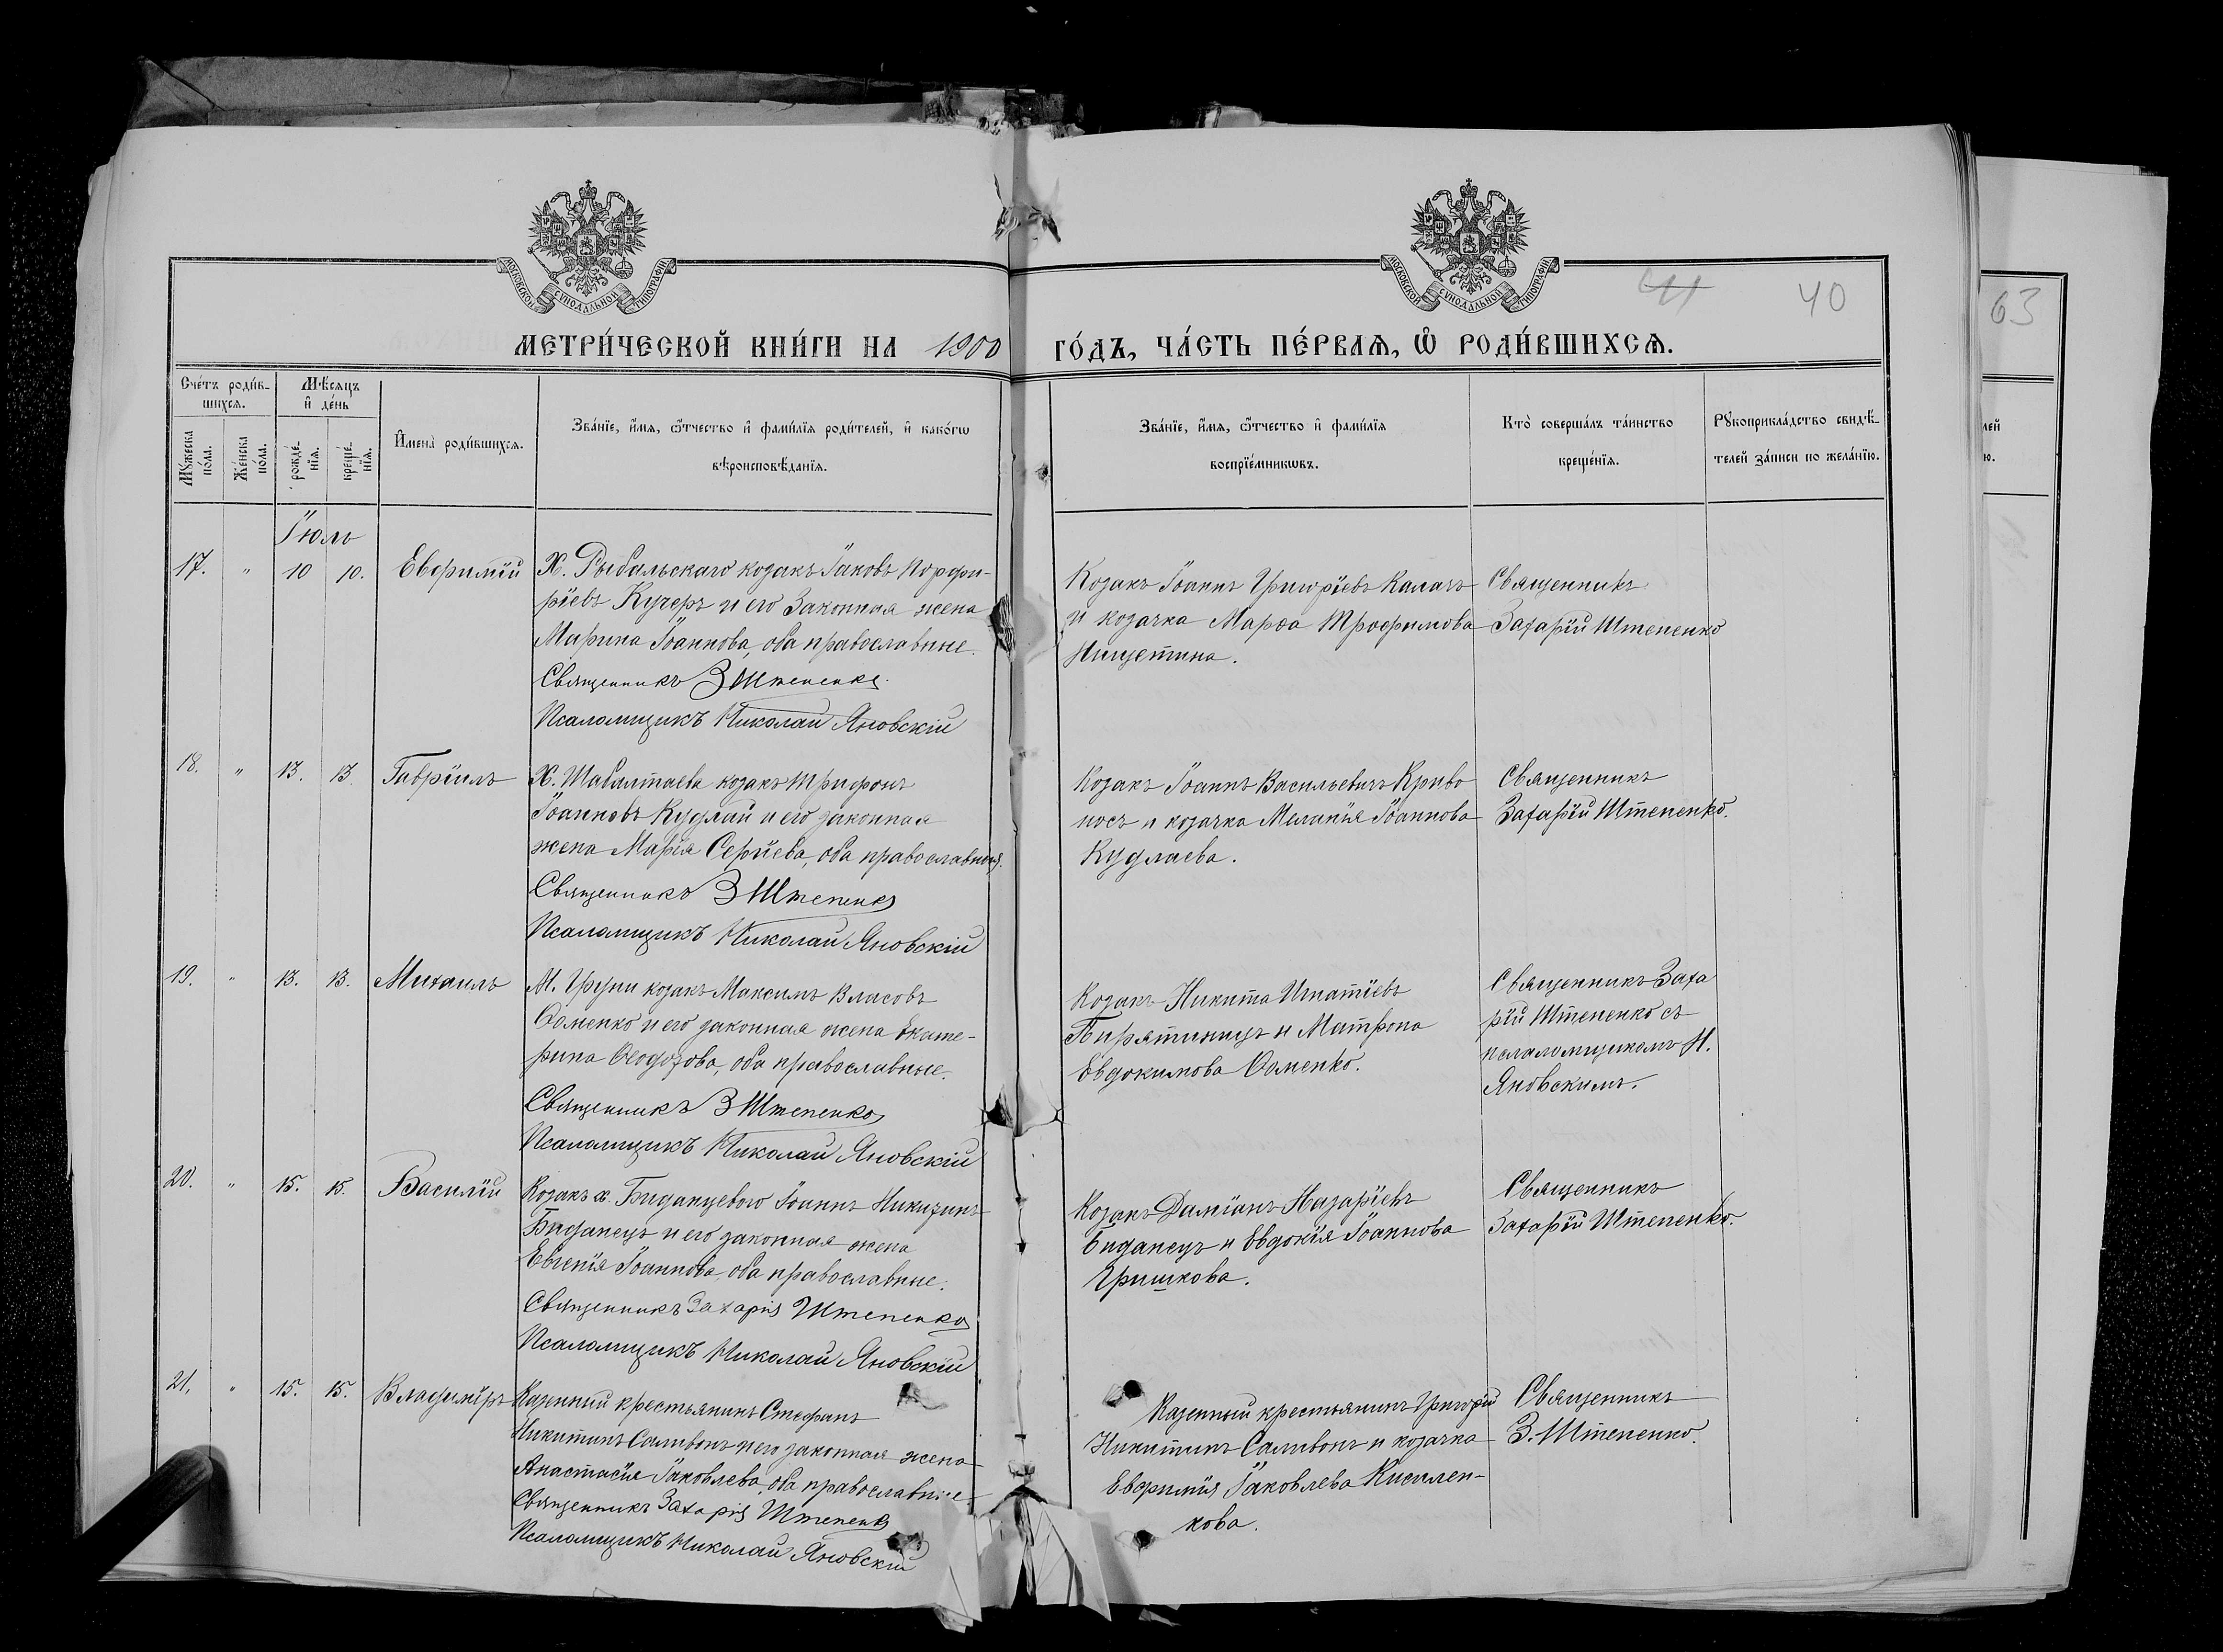 МОСКОВСКОЙ СѴНОДАЛЬНОЙ ТИПОГРАФІИ
МОСКОВСКОЙ СѴНОДАЛЬНОЙ ТИПОГРАФІИ
41 40
63
МЕТРИ́ЧЕСКОЙ КНИ́ГИ НА 1900 ГО́ДЪ, ЧА́СТЬ ПЕ́РВАѦ, Ѡ҆ РОДИ́ВШИХСѦ.
Сче́тъ роди́в-
шихсѧ.
Мꙋжеска по́ла.
Же́нска по́ла.
Мѣ́сѧцъ
и҆ де́нь
рожде́-
нїѧ.
креще́-
нїѧ.
И҆мена̀ роди́вшихсѧ.
Зва́нїе, и҆́мѧ, ѻ҆́тчество и҆ фами́лїѧ роди́телей, и҆ како́гѡ
вѣроисповѣ́данїѧ.
Зва́нїе, и҆́мѧ, ѻ҆́тчество и҆ фами́лїѧ
воспрїе́мникѡвъ.
Кто̀ соверша́лъ та́инство
креще́нїѧ.
Рꙋкоприкла́дство свидѣ́-
телей за́писи по жела́нїю.
Іюль
17. " 10 10. Евфимій
Х. Рыбальскаго козакъ Іаковъ Порфи-
ріевъ Кучеръ и его законная жена
Марина Іоаннова, оба православные.
Священникъ З Штепенко
Псаломщикъ Николай Яновскій
Козакъ Іоаннъ Григоріевъ Калачъ
и козачка Марѳа Трофимова
Нищетина.
Священникъ
Захарій Штепенко
18. " 13. 13. Гавріилъ
Х. Шабалтаева козакъ Трифонъ
Іоанновъ Кудлай и его законная
жена Марія Сергіева, оба православные.
Священникъ З Штепенко
Псаломщикъ Николай Яновскій
Козакъ Іоаннъ Васильевичъ Криво
носъ и козачка Меланія Іоаннова
Кудлаева.
Священникъ
Захарій Штепенко.
19. " 13. 13. Михаилъ
М. Груни козакъ Максимъ Власовъ
Ѳоменко и его законная жена Екате-
рина Ѳеодозова, оба православные.
Священникъ З Штепенко
Псаломщикъ Николай Яновскій
Козакъ Никита Игнатіевъ
Пирятинецъ и Матрона
Евдокимова Ѳоменко.
Священникъ Заха
рій Штепенко съ
псаломщикомъ Н.
Яновскимъ.
20. " 15. 15. Василій
Козакъ х. Биданцевого Іоаннъ Никизинъ
Биданецъ и его законная жена
Евгенія Іоаннова, оба православные.
Священникъ Захарія Штепенко
Псаломщикъ Николай Яновскій
Козакъ Даміанъ Назаріевъ
Биданецъ и Евдокія Іоаннова
Гришкова.
Священникъ
Захарій Штепенко.
21. " 15. 15. Владиміръ
Казенный крестьянинъ Стефанъ
Никитинъ Саливонъ и его законная жена
Анастасія Іаковлева, оба православные
Священникъ Захарія Штепенко
Псаломщикъ Николай Яновскій
Казенный крестьянинъ Григорій
Никитинъ Саливонъ и козачка
Евфимія Іаковлева Кисилен-
кова.
Священникъ
З. Штепенко.